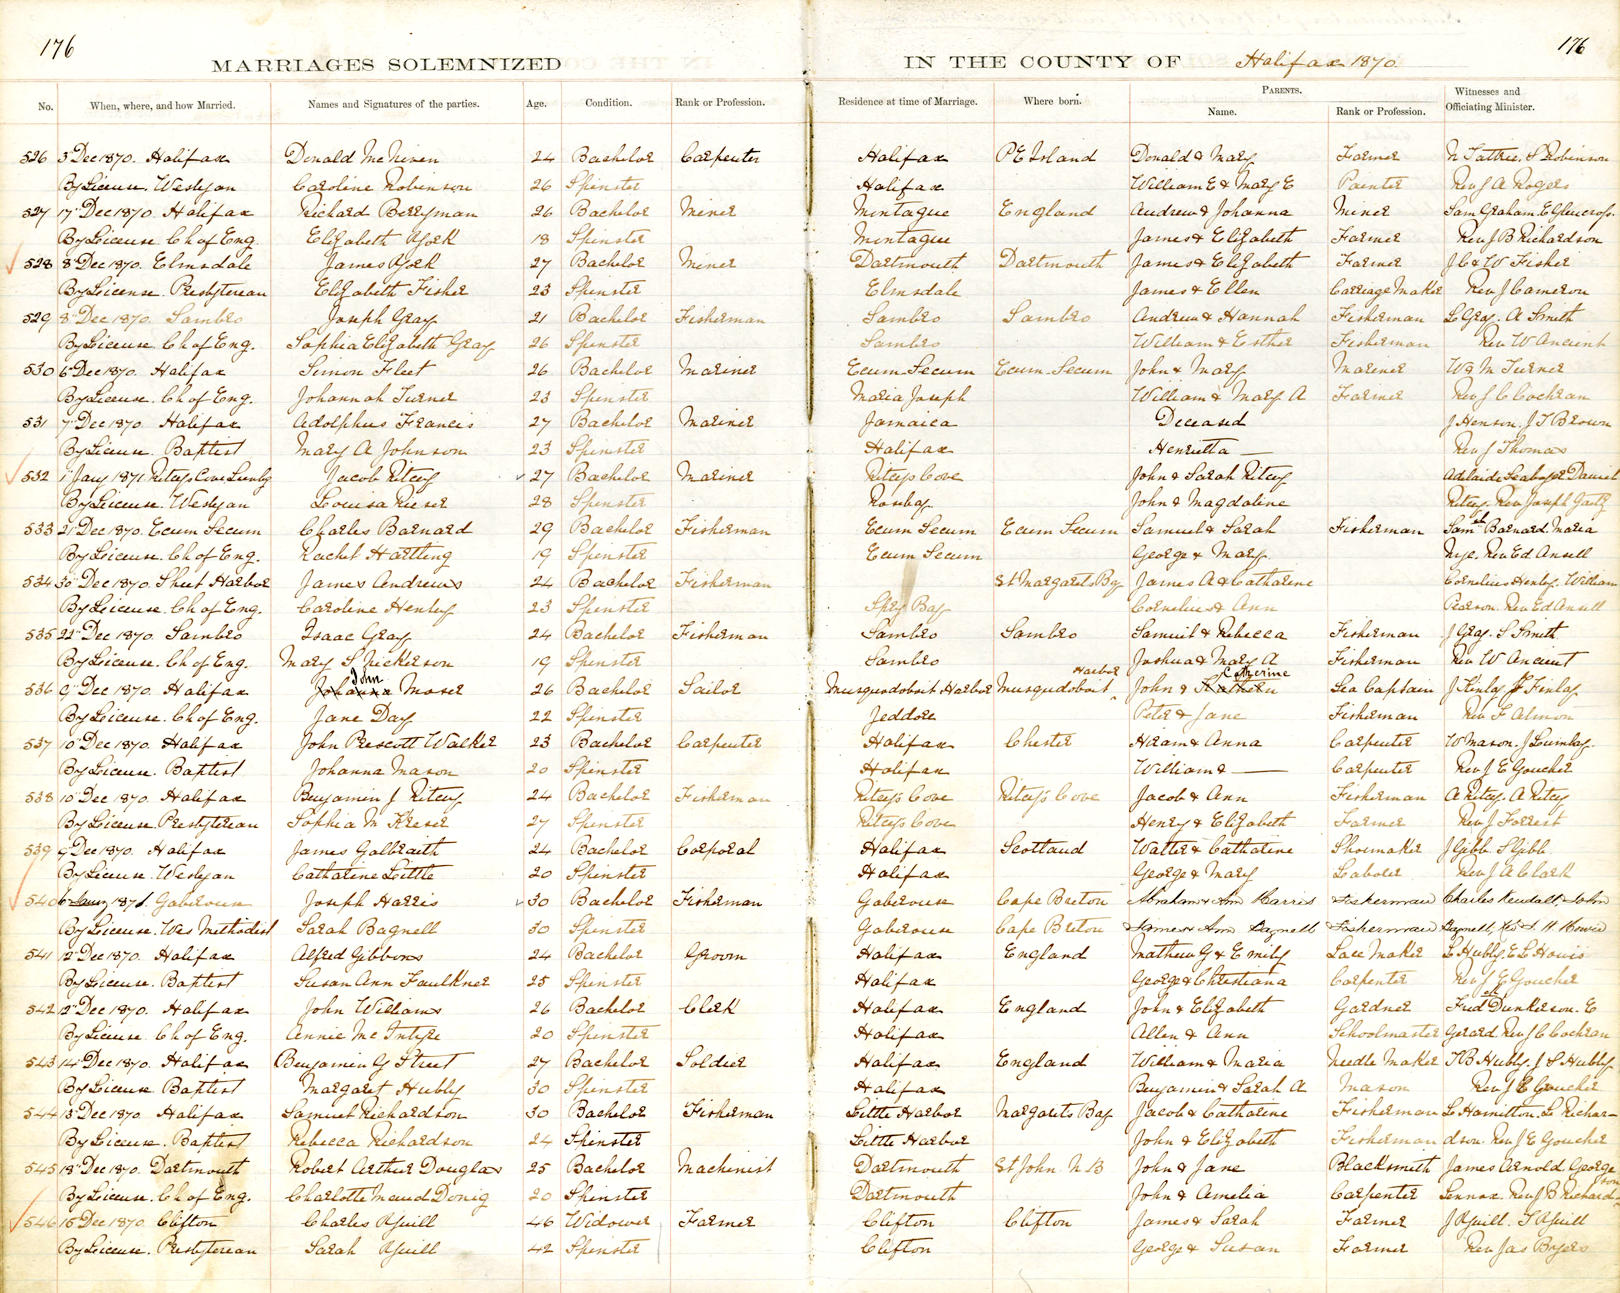 176
MARRIAGES SOLEMNIZED IN THE COUNTY OF Halifax 1870
176
No. When, where, and how Married. Names and Signatures of the parties. Age. Condition. Rank or Profession. Residence at time of Marriage. Where born. PARENTS. Name. Rank or Profession. Witnesses and Officiating Minister.
526 3" Dec 1870. Halifax Donald McNiven 24 Bachelor Carpenter Halifax P E Island Donald & Mary Farmer N Tattrie. S Robinson
By License. Wesleyan Caroline Robinson 26 Spinster Halifax William E & Mary E Painter Rev J A Rogers
527 17" Dec 1870. Halifax Richard Berryman 26 Bachelor Miner Montague England Andrew & Johanna Miner Sam Graham. E Glencross.
By License. Ch of Eng. Elizabeth York 18 Spinster Montague James & Elizabeth Farmer Rev J B Richardson
528 8" Dec 1870. Elmsdale James York 27 Bachelor Miner Dartmouth Dartmouth James & Elizabeth Farmer J C & W Fisher
By License. Presbyterean Elizabeth Fisher 23 Spinster Elmsdale James & Ellen Carriage Maker Rev J Cameron
529 8" Dec 1870. Sambro Joseph Gray 21 Bachelor Fisherman Sambro Sambro Andrew & Hannah Fisherman L Gray. A Smith
By License. Ch of Eng. Sophia Elizabeth Gray 26 Spinster Sambro William & Esther Fisherman Rev W Ancient
530 6" Dec 1870. Halifax Simon Fleet 26 Bachelor Mariner Ecum-Secum Ecum-Secum John & Mary Mariner W & M Turner
By License. Ch of Eng. Johannah Turner 23 Spinster Maria Joseph William & Mary A Farmer Rev J C Cochran
531 7" Dec 1870. Halifax Adolphus Francis 27 Bachelor Mariner Jamaica Deceased J Henson. J T Brown
By License. Baptist Mary A Johnson 23 Spinster Halifax Henrietta — Rev J Thomas
532 1" Jany 1871. Riteys Cove Lunbg Jacob Ritcy 27 Bachelor Mariner Ritcys Cove John & Sarah Ritcy Adelaide Seaboyer Daniel
By License. Wesleyan Louisa Rieser 28 Spinster Rosebay John & Magdaline Ritcy. Rev Joseph Gaetz
533 21" Dec 1870. Ecum Secum Charles Barnard 29 Bachelor Fisherman Ecum Secum Ecum Secum Samuel & Sarah Fisherman Saml Barnard. Maria
By License. Ch of Eng. Rachel Hartling 19 Spinster Ecum Secum George & Mary Nye. Rev Ed Ansell
534 30" Dec 1870. Sheet Harbor James Andrews 24 Bachelor Fisherman St Margarets Bay James A & Catharine Cornelius Henley. William
By License. Ch of Eng. Caroline Henley 23 Spinster Spry Bay Cornelius & Ann Pearson. Rev Ed Ansell
535 22" Dec 1870. Sambro Isaac Gray 24 Bachelor Fisherman Sambro Sambro Samuel & Rebecca Fisherman J Gray. S Smith
By License. Ch of Eng. Mary S Nickerson 19 Spinster Sambro Joshua & Mary A Fisherman Rev W Ancient
536 9" Dec 1870. Halifax John Moser 26 Bachelor Sailor Musquodoboit Harbor Musquodoboit Harbor John & Catherine Sea Captain J Finlay J Finlay
By License. Ch of Eng. Jane Day 22 Spinster Jeddore Peter & Jane Fisherman Rev F Almon
537 10" Dec 1870. Halifax John Prescott Walker 23 Bachelor Carpenter Halifax Chester Hiram & Anna Carpenter W Mason. J Lumley.
By License. Baptist Johanna Mason 20 Spinster Halifax William & — Carpenter Rev J E Goucher
538 10" Dec 1870. Halifax Benjamin J Ritcy 24 Bachelor Fisherman Ritcy's Cove Ritcy's Cove Jacob & Ann Fisherman A Ritcy. A Ritcy
By License. Presbyterean Sophia M Kreser 27 Spinster Ritcys Cove Henry & Elizabeth Farmer Rev J Forrest
539 9" Dec 1870. Halifax James Galbraith 24 Bachelor Corporal Halifax Scotland Walter & Catharine Shoemaker J Gibb S Gibb
By License. Wesleyan Catharine Little 20 Spinster Halifax George & Mary Laborer Rev J A Clark
540 6 Jany 1871. Gaberouse Joseph Harris 30 Bachelor Fisherman Gaberouse Cape Breton Abraham & Ann Harris Fisherman Charles Kendall & John
By License. Wes Methodist Sarah Bagnell 30 Spinster Gaberouse Cape Breton James & Ann Bagnell Fisherman Bagnell,
541 12" Dec 1870. Halifax Alfred Gibbons 24 Bachelor Groom Halifax England Mathew G & Emily Lace Maker L Hubly. E L Howis
By License. Baptist Susan Ann Faulkner 25 Spinster Halifax George & Christiana Carpenter Rev J E Goucher
542 12" Dec 1870. Halifax John Williams 26 Bachelor Clerk Halifax England John & Elizabeth Gardner Fred Dunkerson. E
By License. Ch of Eng. Annie McIntyre 20 Spinster Halifax Allen & Ann Schoolmaster Gerard Rev J C Cochran
543 14" Dec 1870. Halifax Benjamin G Street 27 Bachelor Soldier Halifax England William & Maria Needle Maker T B Hubly. J S Hubly
By License Baptist Margaret Hubly 30 Spinster Halifax Benjamin & Sarah A Mason Rev J E Goucher
544 13" Dec 1870 Halifax Samuel Richardson 30 Bachelor Fisherman Little Harbor Margarets Bay Jacob & Catharine Fisherman L Hamilton. L Richar-
By License. Baptist Rebecca Richardson 24 Spinster Little Harbor John & Elizabeth Fisherman dson. Rev J E Goucher
545 18" Dec 1870. Dartmouth Robert Arthur Douglas 25 Bachelor Machinist Dartmouth St John N B John & Jane Blacksmith James Arnold George
By License. Ch of Eng. Charlotte Maud Donig 20 Spinster Dartmouth John & Amelia Carpenter Lennox. Rev J B Richardson
546 15 Dec 1870. Clifton Charles Yuill 46 Widower Farmer Clifton Clifton James & Sarah Farmer J Yuill. T Yuill
By License. Presbyterean Sarah Yuill 42 Spinster Clifton George & Susan Farmer Rev Jas Byers